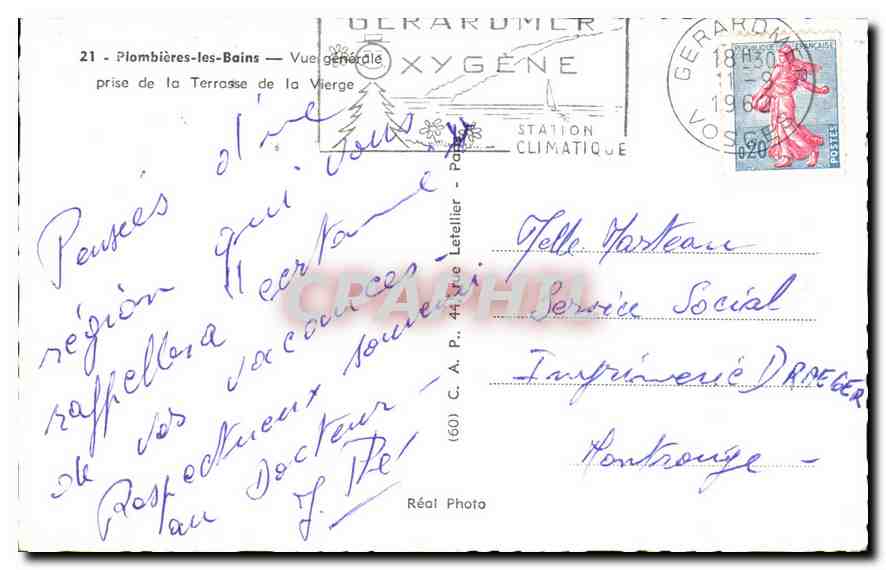 21 - Plombières-les-Bains — Vue générale
prise de la Terrasse de la Vierge
GERARDMER
OXYGÈNE
STATION
CLIMATIQUE
GERARDMER
18H30
1960
VOSGES
REPUBLIQUE FRANÇAISE
0,20
POSTES
Pensées d'une
région qui vous
rappellera "certaines"
de vos vacances -
Respectueux souvenir
au Docteur -
J.
(60) C. A. P., 44, rue Letellier - Paris
Melle Marteau
Service Social
Imprimerie DRAEGER
Montrouge -
Réal Photo
CPAPHIL